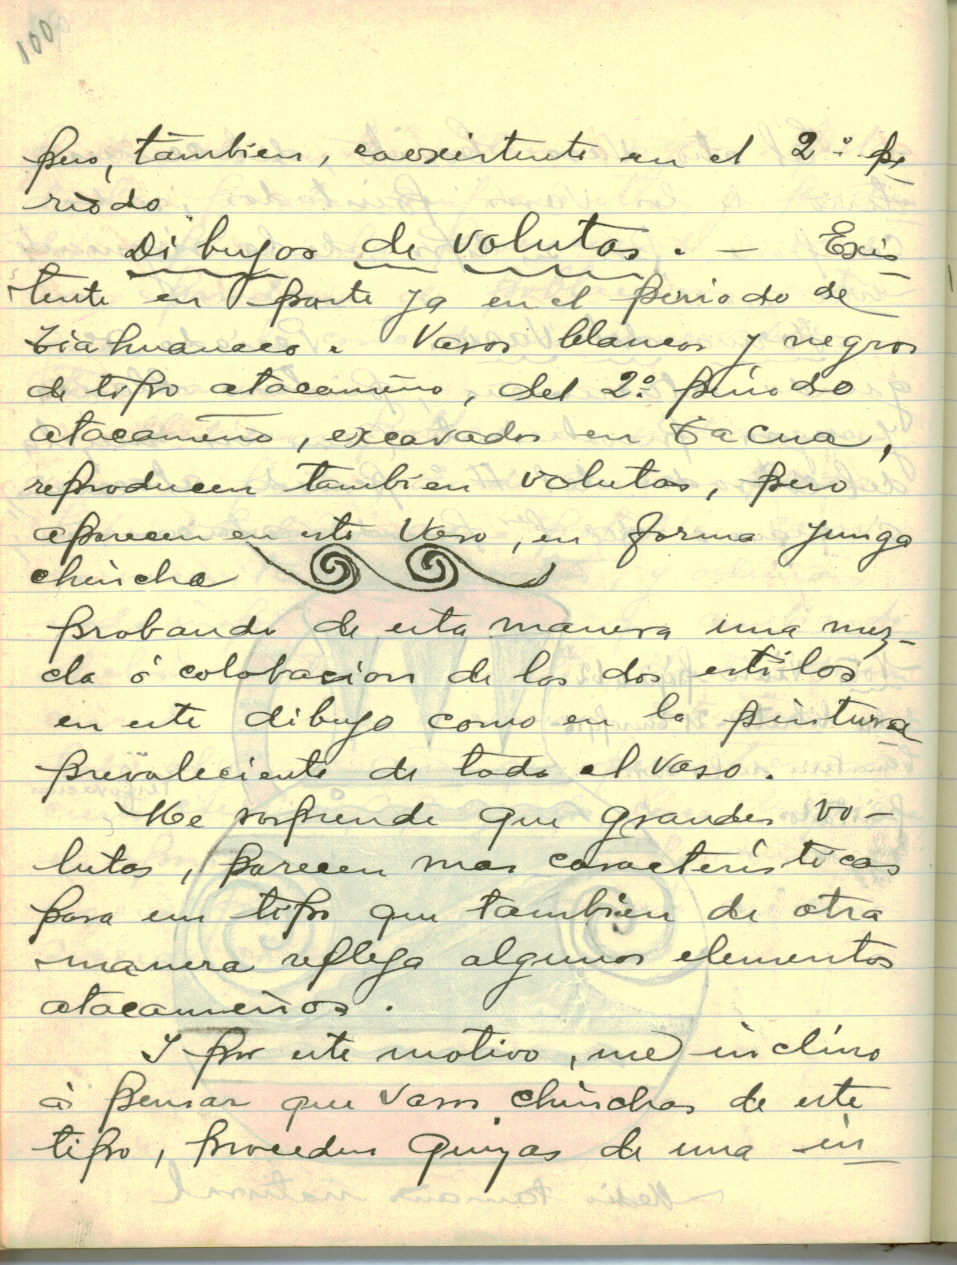 100
pero, tambien, coexistente en el 2º pe-
riodo.
Dibujos de volutas. — Exis-
tente en parte ya en el periodo de
Tiahuanaco. Vasos blancos y negros
de tipo atacameño, del 2º periodo
atacameño, excavados en Tacna,
reproducen tambien volutas, pero
aparecen en este Vaso, en forma yunga
chincha
probando de esta manera una mez-
cla ó colobacion de los dos estilos
en este dibujo como en la pintura
prevaleciente de todo el vaso.
Me sorprende que grandes vo-
lutas, parecen mas caracteristicas
para un tipo que tambien de otra
manera refleja algunos elementos
atacameños.
I por este motivo, me inclino
á pensar que vasos chinchas de este
tipo, proceden quizas de una in-